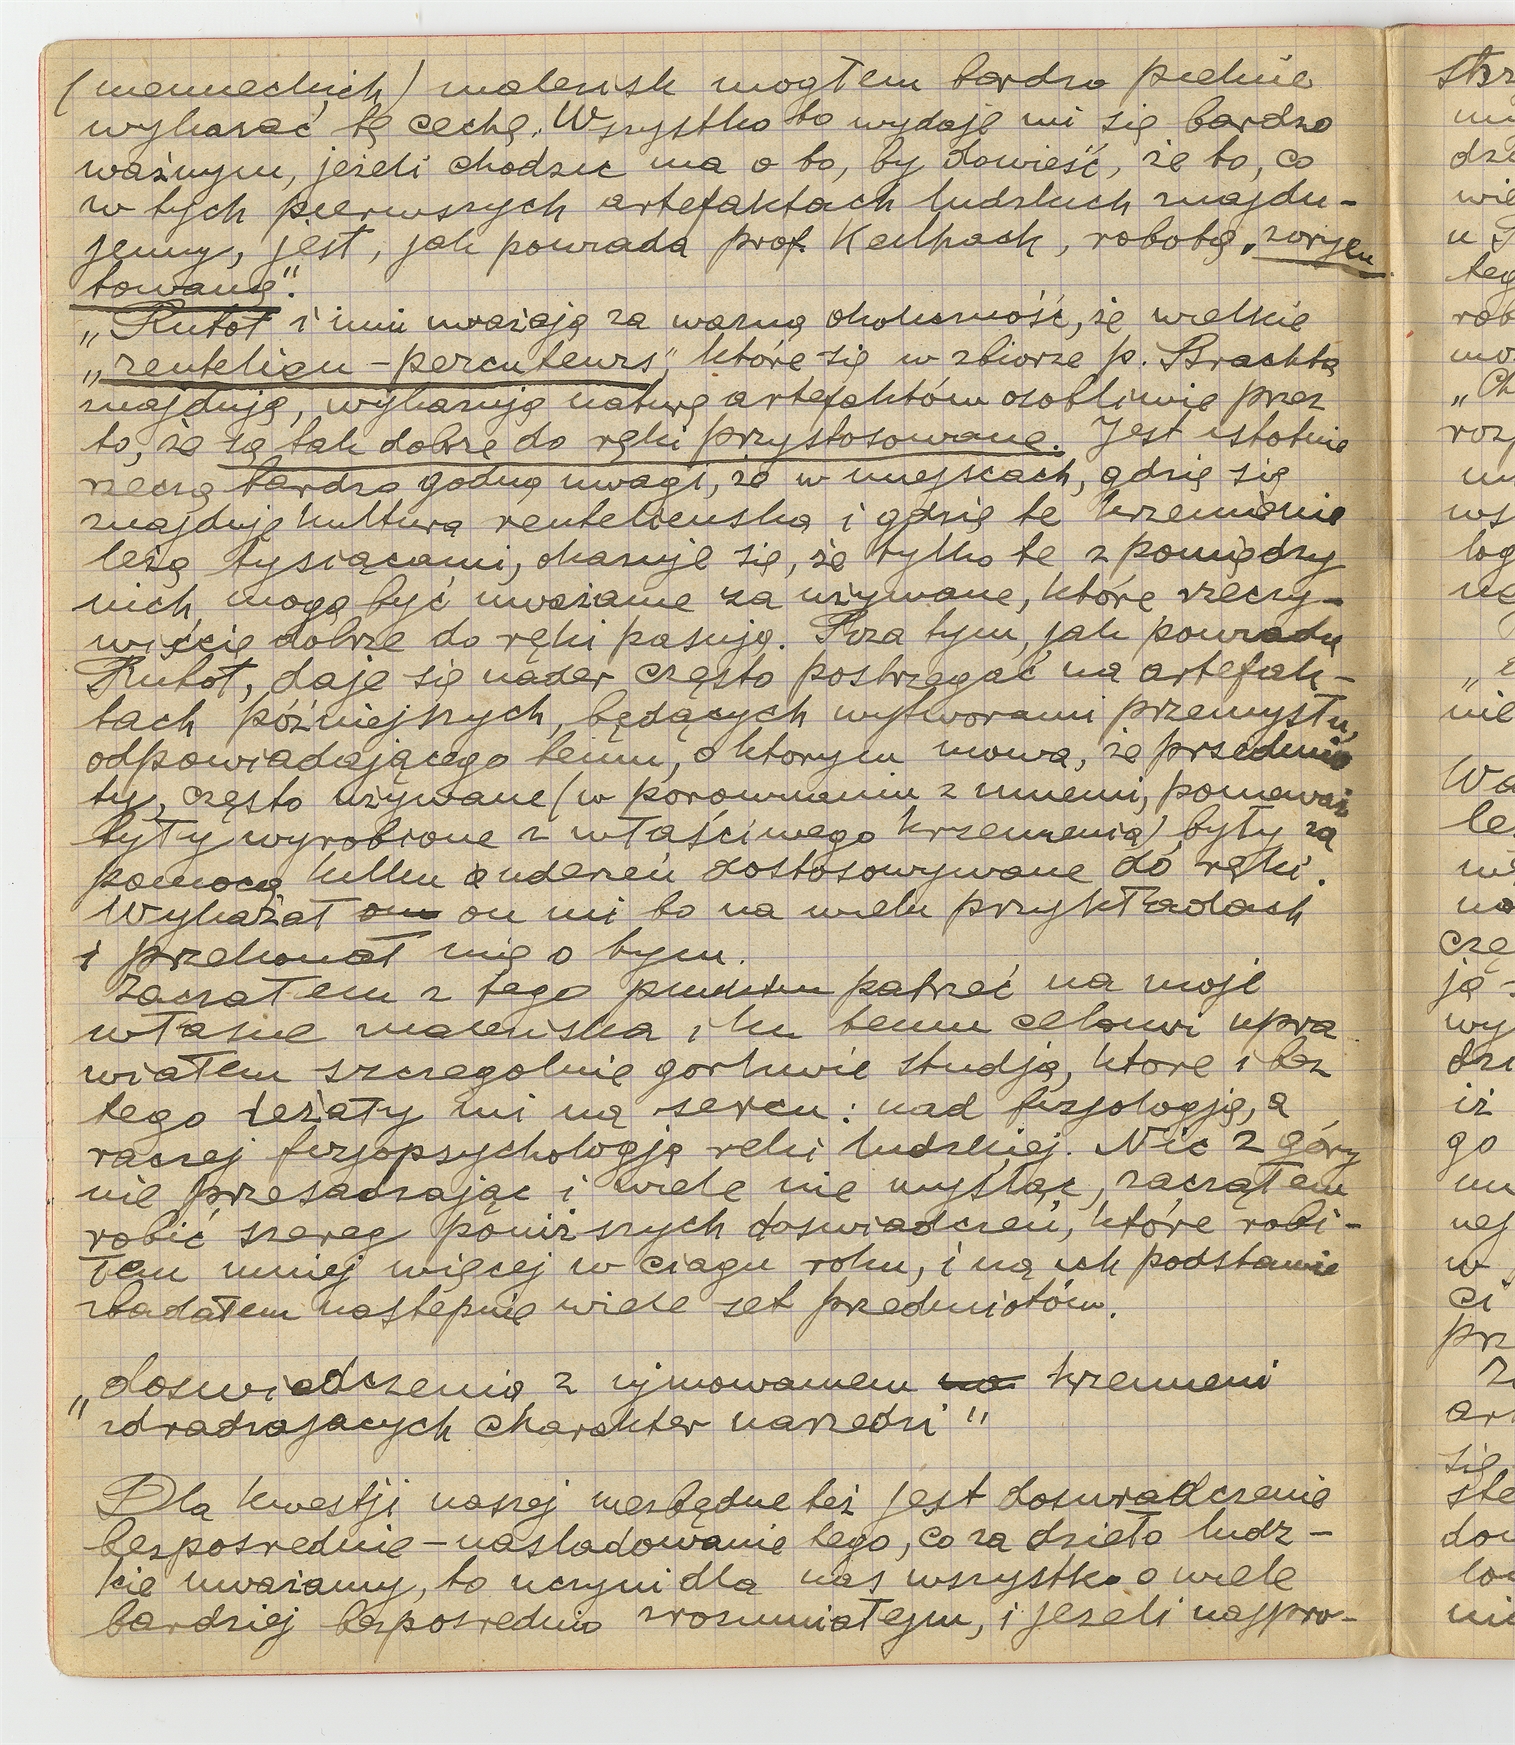 (niemieckich) znalezisk mogłem bardzo pięknie
wykazać tę cechę. Wszystko to wydaje mi się bardzo
ważnym, jeżeli chodzić ma o to, by dowieść, że to, co
w tych pierwszych artefaktach ludzkich znajdu-
jemy, jest, jak powiada prof. Klaatsch, robotą „zoryen
towaną".
„Rutot i inni uważają za ważną okoliczność, że wielkie
„reutelien-percuteurs", które się w zbiorze p. Brachta
znajdują, wykazują naturę artefaktów osobliwie przez
to, że są tak dobrze do ręki przystosowane. Jest istotnie
rzeczą bardzo godną uwagi, że w miejscach, gdzie się
znajduje kultura reutelieńska i gdzie te krzemienie
leżą tysiącami, okazuje się, że tylko te z pomiędzy
nich mogą być uważane za używane, które rzeczy-
wiście dobrze do ręki pasują. Poza tym, jak powiada
Rutot, daje się nader często postrzegać na artefak-
tach późniejszych, będących wytworami przemysłu,
odpowiadającego temu, o którym mowa, że przedmio
ty, często używane (w porównaniu z innemi, ponieważ
były wyrobione z właściwego krzemienia) były za
pomocą kilku uderzeń dostosowywane do ręki.
Wykazał on mi to na wielu przykładach
i przekonał mię o tym.
Zacząłem z tego punktu patrzeć na moje
własne znaleziska i ku temu celowi upra
wiałem szczególnie gorliwie studja, które i bez
tego leżały mi na sercu: nad fizjologją, a
raczej fizjopsychologją ręki ludzkiej. Nic z góry
nie przesądzając i wiele nie myśląc, zacząłem
robić szereg poniższych doświadczeń, które robi-
łem mniej więcej w ciągu roku, i na ich podstawie
zbadałem następnie wiele set przedmiotów.
„doświadczenia z ujmowaniem krzemieni
zdradzających charakter narzędzi"
Dla kwestji naszej niezbędne też jest doświadczenie
bezpośrednie - naśladowanie tego, co za dzieło ludz-
kie uważamy, to uczyni dla nas wszystko o wiele
bardziej bezpośrednio zrozumiałym, i jeżeli najpro-